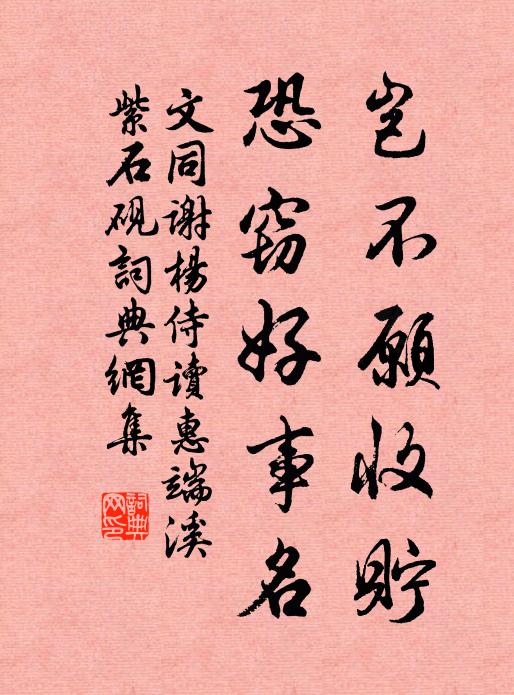 豈不願收貯
恐竊好事名
文同謝楊侍讀惠端溪
紫石硯詞典網集
詞典網印